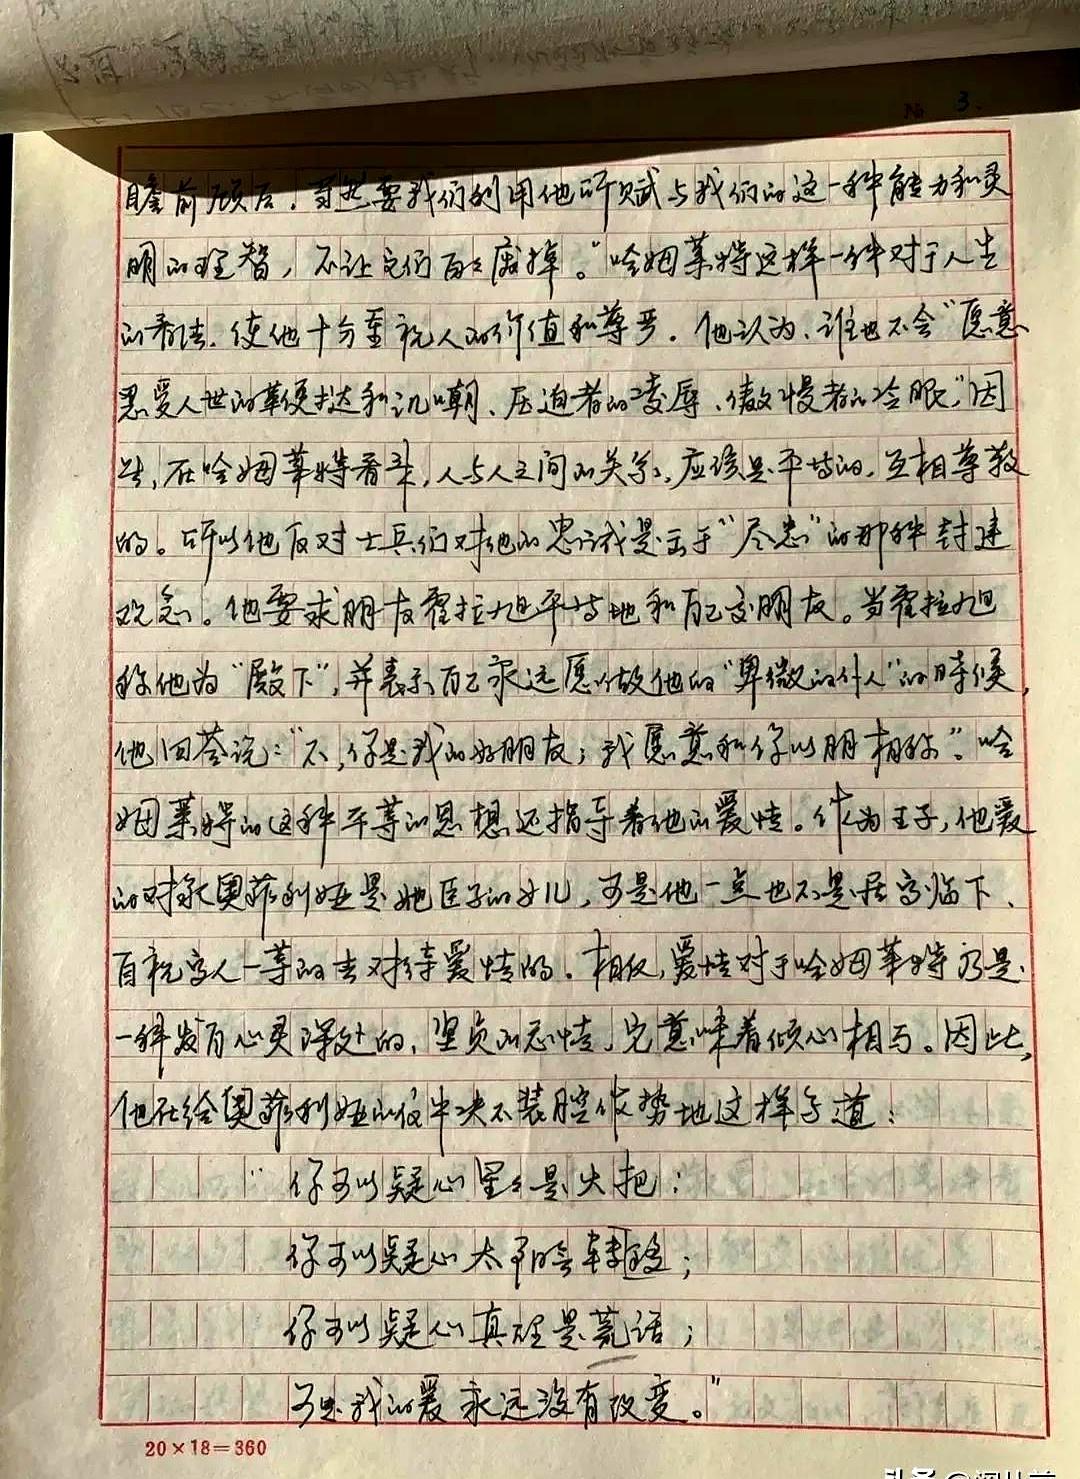 № 3.
瞻前顾后，当然要我们利用他所赋与我们的这一种能力和灵
明的理智，不让它们白白废掉。"哈姆莱特这样一种对于人生
的看法，使他十分重视人的价值和尊严。他认为，谁也不会"愿意
忍受人世的鞭挞和讥嘲、压迫者的凌辱、傲慢者的冷眼"，因
此，在哈姆莱特看来，人与人之间的关系，应该是平等的，互相尊敬
的。所以他反对士兵们对他的忠诚是出于"尽忠"的那种封建
观念。他要求朋友霍拉旭平等地和自己交朋友。当霍拉旭
称他为"殿下"，并表示自己永远愿以做他的"卑微的仆人"的时候，
他回答说："不，你是我的好朋友；我愿意和你以朋相称"。哈
姆莱特的这种平等的思想还指导着他的爱情。作为王子，他爱
的对象奥菲利娅是她臣子的女儿，可是他一点也不是居高临下、
自视高人一等的去对待爱情的。相反，爱情对于哈姆莱特乃是
一种发自心灵深处的，坚贞的感情，它意味着倾心相与。因此，
他在给奥菲利娅的信中决不装腔作势地这样写道：
"你可以疑心星星是火把；
你可以疑心太阳会转移；
你可以疑心真理是谎话；
可是我的爱永远没有改变。"
20×18=360